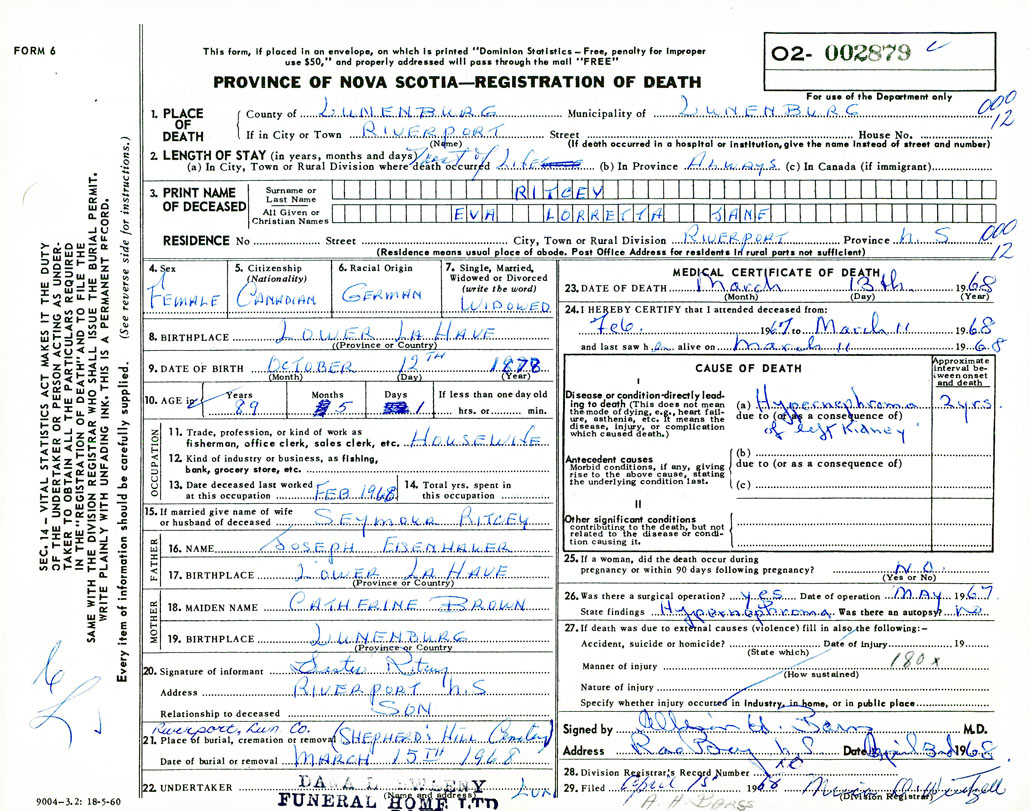 FORM 6
This form, if placed in an envelope, on which is printed "Dominion Statistics – Free, penalty for improper
use $50," and properly addressed will pass through the mail "FREE"
O2- 002879
For use of the Department only
PROVINCE OF NOVA SCOTIA—REGISTRATION OF DEATH
000
12
1. PLACE OF DEATH
County of LUNENBURG Municipality of LUNENBURG
If in City or Town RIVERPORT Street House No.
(Name) (If death occurred in a hospital or institution, give the name instead of street and number)
2. LENGTH OF STAY (in years, months and days)
(a) In City, Town or Rural Division where death occurred Most of Life (b) In Province Always (c) In Canada (if immigrant)
3. PRINT NAME OF DECEASED
Surname or Last Name RITCEY
All Given or Christian Names EVA LORRETTA JANE
RESIDENCE No Street City, Town or Rural Division RIVERPORT Province N. S
(Residence means usual place of abode. Post Office Address for residents in rural parts not sufficient)
000
12
4. Sex
FEMALE
5. Citizenship
(Nationality)
CANADIAN
6. Racial Origin
GERMAN
7. Single, Married, Widowed or Divorced
(write the word)
WIDOWED
8. BIRTHPLACE LOWER LA HAVE
(Province or Country)
9. DATE OF BIRTH OCTOBER 12TH 1878
(Month) (Day) (Year)
10. AGE in Years Months Days If less than one day old
89 5 1 hrs. or min.
OCCUPATION
11. Trade, profession, or kind of work as
fisherman, office clerk, sales clerk, etc. HOUSEWIFE
12. Kind of industry or business, as fishing,
bank, grocery store, etc.
13. Date deceased last worked
at this occupation FEB 1968
14. Total yrs. spent in
this occupation
15. If married give name of wife
or husband of deceased SEYMOUR RITCEY
FATHER
16. NAME JOSEPH EISENHAUER
17. BIRTHPLACE LOWER LA HAVE
(Province or Country)
MOTHER
18. MAIDEN NAME CATHERINE BROWN
19. BIRTHPLACE LUNENBURG
(Province or Country
20. Signature of informant Ritcey
Address RIVERPORT N.S
Relationship to deceased SON
Riverport, Lun Co.
21. Place of burial, cremation or removal (SHEPHERD'S HILL Cemetery)
Date of burial or removal MARCH 15TH 1968
22. UNDERTAKER
(Name and address)
FUNERAL HOME LTD LUN
MEDICAL CERTIFICATE OF DEATH
23. DATE OF DEATH March 13th 1968
(Month) (Day) (Year)
24. I HEREBY CERTIFY that I attended deceased from:
Feb. 1967 to March 11 1968
and last saw her alive on March 11 1968
CAUSE OF DEATH
Approximate interval be- tween onset and death
I
Disease or condition directly lead-
ing to death (This does not mean
the mode of dying, e.g., heart fail-
ure, asthenia, etc. It means the
disease, injury, or complication
which caused death.)
(a) Hypernephroma 2 yrs.
due to (or as a consequence of)
of left Kidney
Antecedent causes
Morbid conditions, if any, giving
rise to the above cause, stating
the underlying condition last.
(b)
due to (or as a consequence of)
(c)
II
Other significant conditions
contributing to the death, but not
related to the disease or condi-
tion causing it.
25. If a woman, did the death occur during
pregnancy or within 90 days following pregnancy? NO
(Yes or No)
26. Was there a surgical operation? yes Date of operation MAY 1967
State findings Hypernephroma Was there an autopsy? no
27. If death was due to external causes (violence) fill in also the following:–
Accident, suicide or homicide? Date of injury 19
(State which)
Manner of injury 180x
(How sustained)
Nature of injury
Specify whether injury occurred in Industry, in home, or in public place
Signed by M.D.
Address Rose Bay N.S Date April 3rd 1968
28. Division Registrar's Record Number
29. Filed April 1968
(Division Registrar)
SEC. 14 – VITAL STATISTICS ACT MAKES IT THE DUTY
OF THE UNDERTAKER OR PERSON ACTING AS UNDER-
TAKER TO OBTAIN ALL THE PARTICULARS REQUIRED
IN THE "REGISTRATION OF DEATH" AND TO FILE THE
SAME WITH THE DIVISION REGISTRAR WHO SHALL ISSUE THE BURIAL PERMIT.
WRITE PLAINLY WITH UNFADING INK. THIS IS A PERMANENT RECORD.
Every item of information should be carefully supplied. (See reverse side for instructions.)
9004–3.2: 18-5-60